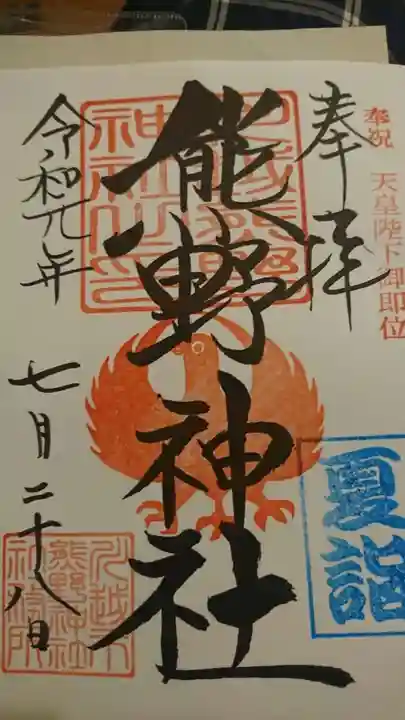 奉祝 天皇陛下御即位
奉拝
熊野神社
令和元年
七月二十八日
夏詣
川越熊野神社之印
川越市
熊野神社
社務所